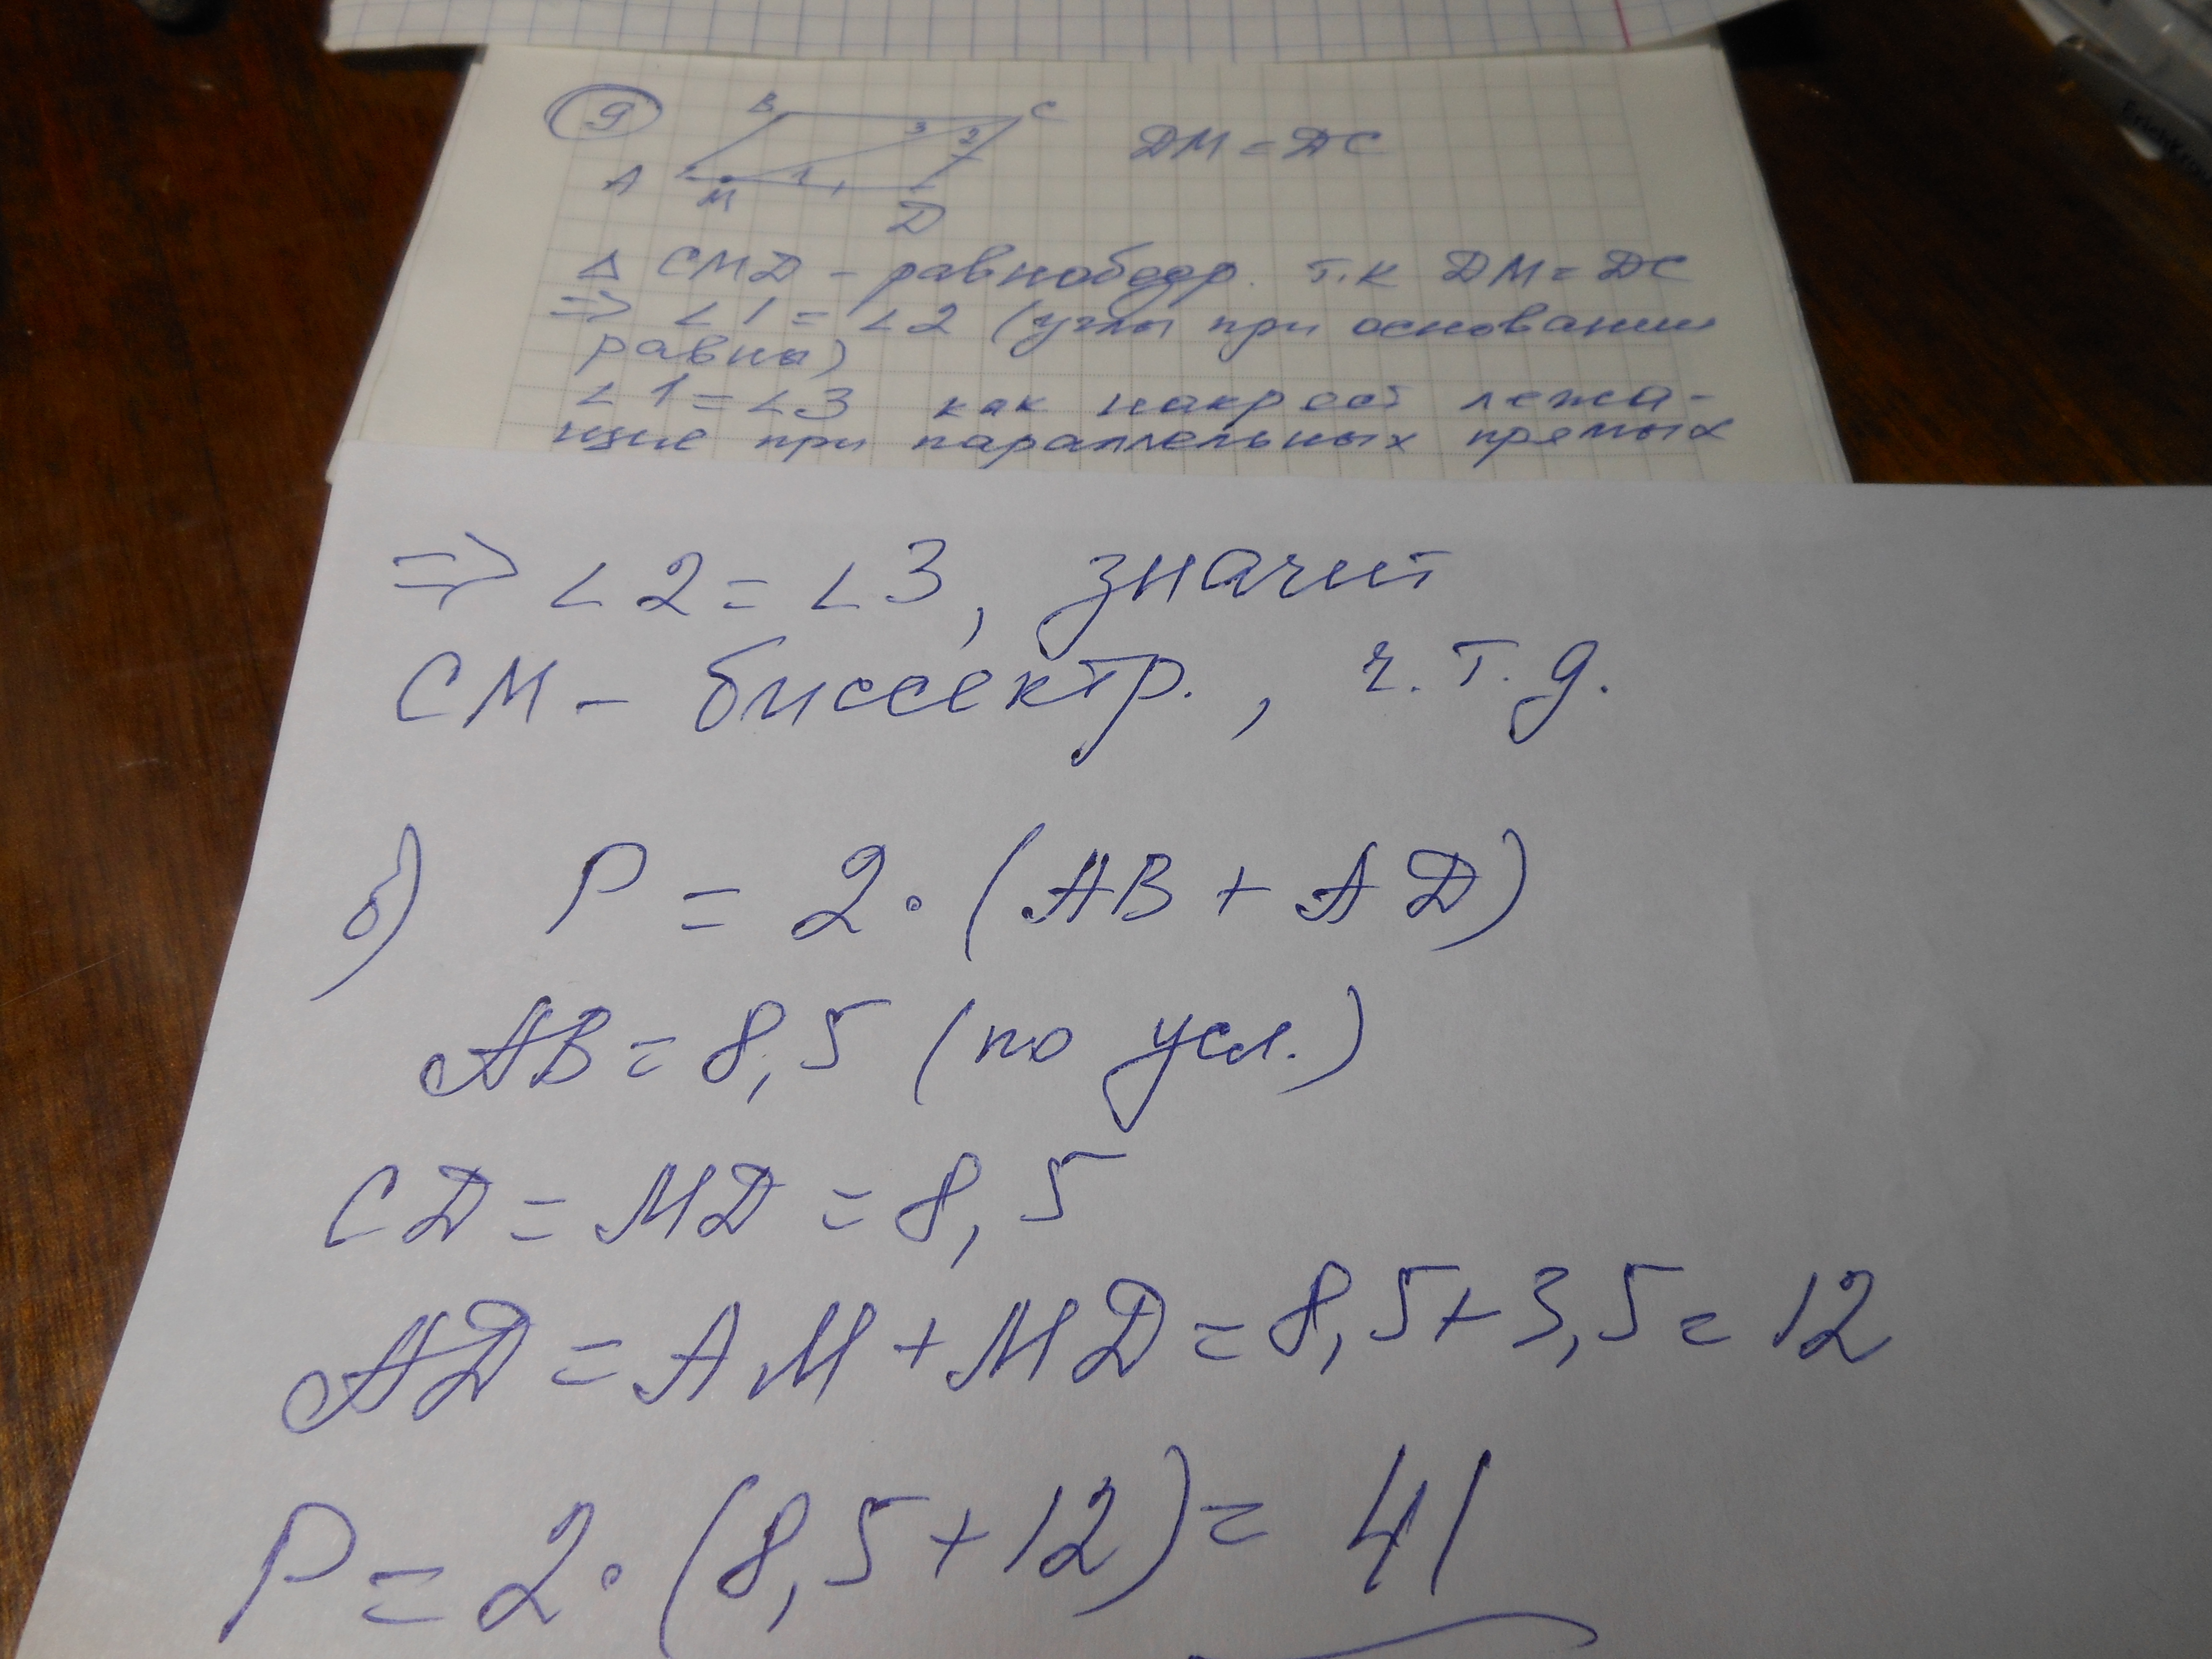 9
B C
3 2
A M 1 D
DM = DC
Δ CMD - равнобедр. т.к DM = DC
=> ∠1 = ∠2 (углы при основании
равны)
∠1 = ∠3 как накрест лежа-
щие при параллельных прямых
=> ∠2 = ∠3, значит
CM - биссектр., ч.т.д.
б) P = 2·(AB + AD)
AB = 8,5 (по усл.)
CD = MD = 8,5
AD = AM + MD = 8,5 + 3,5 = 12
P = 2·(8,5 + 12) = 41